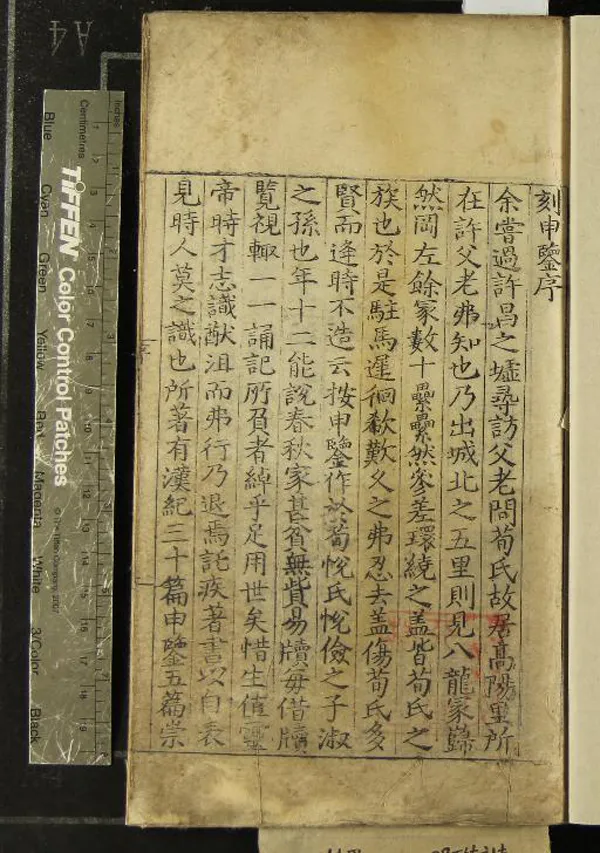 刻申鑒序
余嘗過許昌之墟尋訪父老問荀氏故居高陽里所
在許父老弗知也乃出城北之五里則見八龍冢巋
然岡左餘冢數十纍纍然參差環繞之盖皆荀氏之
族也於是駐馬遲徊欷歎久之弗忍去盖傷荀氏多
賢而逢時不造云按申鑒作於荀恱氏恱儉之子淑
之孫也年十二能說春秋家甚貧無貲易牘每借牘
覽視輙一一誦記所負者綽乎足用世矣惜生值靈
帝時才志識猷沮而弗行乃退焉託疾著書以自表
見時人莫之識也所著有漢紀三十篇申鑒五篇崇
A4
Inches
Centimetres
TIFFEN Color Control Patches
Blue
Cyan
Green
Yellow
Red
Magenta
White
3/Color
Black